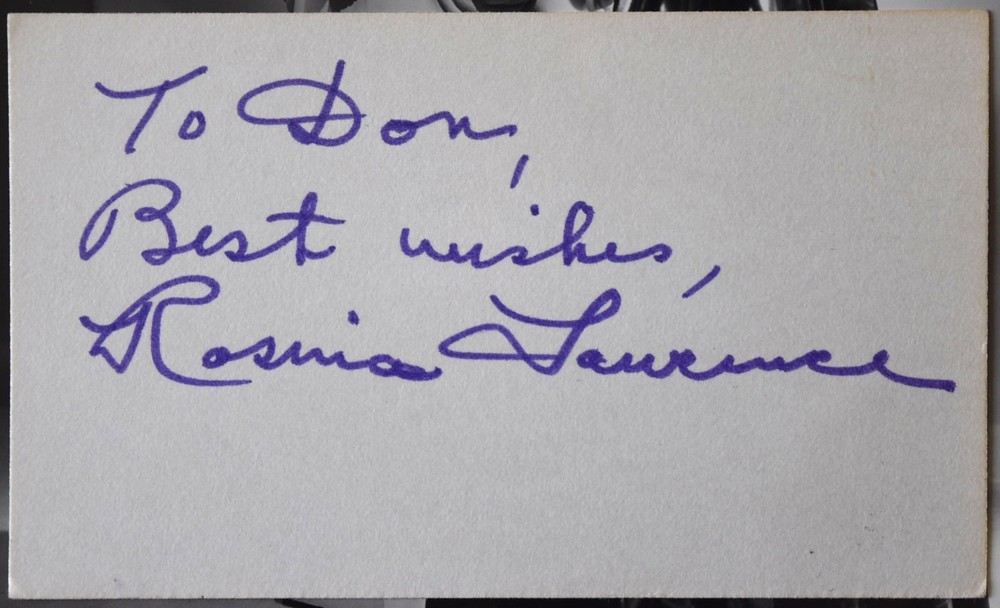 To Don,
Best wishes,
Rosina Lawrence